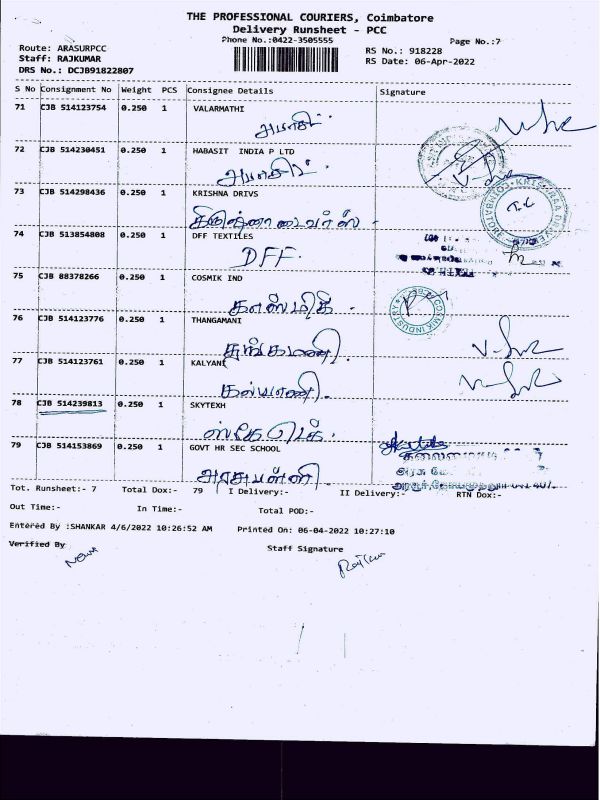 THE PROFESSIONAL COURIERS, Coimbatore
Delivery Runsheet - PCC
Phone No.:0422-3505555
Page No.:7
Route: ARASURPCC
RS No.: 918228
Staff: RAJKUMAR
RS Date: 06-Apr-2022
DRS No.: DCJB91822807
S No Consignment No Weight PCS Consignee Details Signature
71 CJB 514123754 0.250 1 VALARMATHI
72 CJB 514230451 0.250 1 HABASIT INDIA P LTD
73 CJB 514298436 0.250 1 KRISHNA DRIVS
74 CJB 513854808 0.250 1 DFF TEXTILES
DFF.
75 CJB 88378266 0.250 1 COSMIK IND
காஸ்மிக்.
76 CJB 514123776 0.250 1 THANGAMANI
தங்கமணி.
77 CJB 514123761 0.250 1 KALYANI
கல்யாணி.
78 CJB 514239813 0.250 1 SKYTEXH
ஸ்கை டெக்.
79 CJB 514153869 0.250 1 GOVT HR SEC SCHOOL
அரசுபள்ளி
Tot. Runsheet:- 7 Total Dox:- 79 I Delivery:- II Delivery:- RTN Dox:-
Out Time:- In Time:- Total POD:-
Entered By :SHANKAR 4/6/2022 10:26:52 AM Printed On: 06-04-2022 10:27:10
Verified By Staff Signature